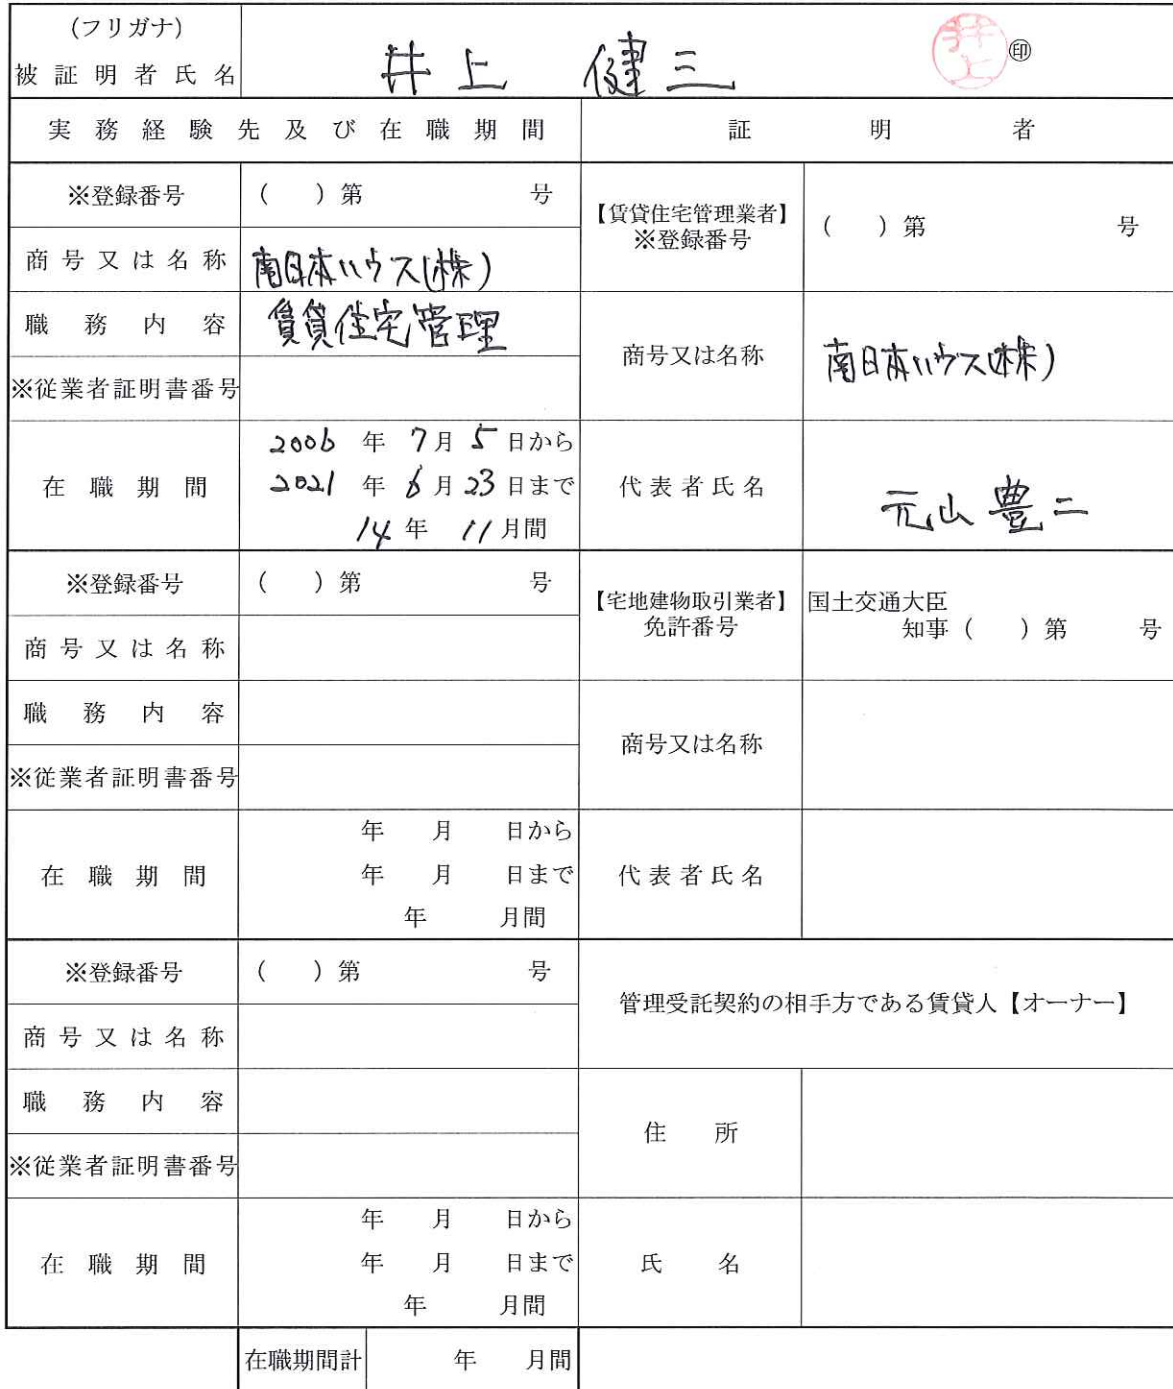 (フリガナ)
被証明者氏名 井上 健三 井上 ㊞
実務経験先及び在職期間 証明者
※登録番号 ( )第 号
【賃貸住宅管理業者】
※登録番号 ( )第 号
商号又は名称 南日本ハウス(株)
職務内容 賃貸住宅管理
商号又は名称 南日本ハウス(株)
※従業者証明書番号
在職期間
2006年7月5日から
2021年6月23日まで
14年11月間
代表者氏名 元山豊二
※登録番号 ( )第 号
【宅地建物取引業者】
免許番号
国土交通大臣
知事( )第 号
商号又は名称
職務内容
商号又は名称
※従業者証明書番号
在職期間
年 月 日から
年 月 日まで
年 月間
代表者氏名
※登録番号 ( )第 号
管理受託契約の相手方である賃貸人【オーナー】
商号又は名称
職務内容
住所
※従業者証明書番号
在職期間
年 月 日から
年 月 日まで
年 月間
氏名
在職期間計 年 月間